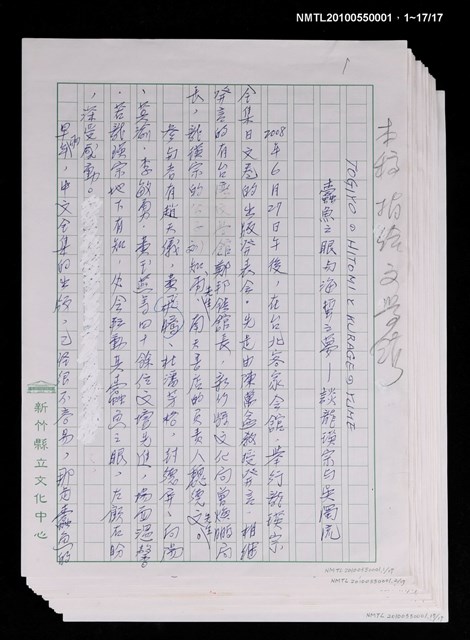 NMTL20100550001・1~17/17
1
本稿捐給文學館
TOGIYO の HITOMI と KURAGE の YUME
蠹魚之眼與海月之夢—談龍瑛宗與吳濁流
2008年6月29日午後,在台北客家會館,舉行龍瑛宗
全集日文卷的出版發表會。先是由陳萬益教授發言,相繼
發言的有台 館鄭邦鎮館長,新竹縣文化局曾煥鵬局
長,龍瑛宗的 劉知甫先生,南天書店的負責人魏德文先生。
參與者有趙天儀、黃 、杜潘芳格、封德屏、向陽
、莫渝、李敏勇、黃玉燕等四十餘位文壇先進,場面溫馨
。若龍瑛宗地下有知,必會轉動其蠹魚之眼,左顧右盼
,深受感動。
早期,中文全集的出版,已經很不容易,那
新竹縣立文化中心
NMTL20100550001-1/17
NMTL20100550001-
NMTL20100550001-17/17